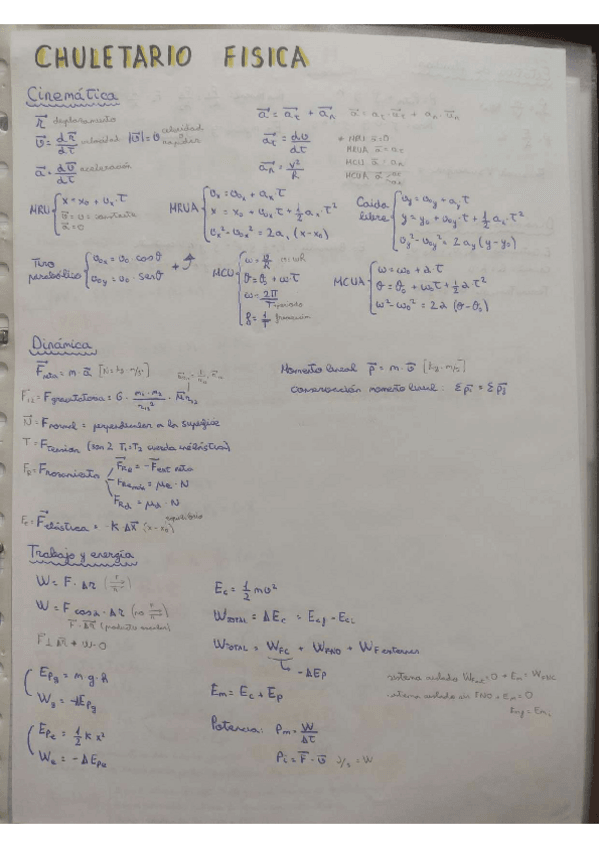 CHULETARIO FISICA
Cinemática
r⃗ desplazamiento
v⃗ = dr⃗/dt velocidad |v⃗| = v celeridad rapidez
a⃗ = dv⃗/dt aceleración
a⃗ = a⃗t + a⃗n a⃗ = at · u⃗t + an · u⃗n
a⃗t = dv/dt
a⃗n = v²/R
* MRU a⃗=0
MRUA a⃗=at
MCU a⃗=an
MCUA a⃗ at an
MRU { x = x0 + vx t
v⃗ = v = constante
a⃗ = 0
MRUA { vx = v0x + ax t
x = x0 + v0x t + 1/2 ax t²
vx² - v0x² = 2ax (x - x0)
Caída libre { vy = v0y + ay t
y = y0 + v0y · t + 1/2 ay t²
vy² - v0y² = 2ay (y - y0)
Tiro parabólico { v0x = v0 cosθ
v0y = v0 · senθ
MCU { ω = v/R
θ = θ0 + ω·t
ω = 2π/T periodo
f = 1/T frecuencia
MCUA { ω = ω0 + α·t
θ = θ0 + ω0t + 1/2 α t²
ω² - ω0² = 2α (θ - θ0)
Dinámica
F⃗neta = m · a⃗ [N = kg · m/s²]
F12 = Fgravitatoria = G · m1 · m2 / r12² · u⃗r12
N⃗ = Fnormal = perpendicular a la superficie
T = Ftensión (son 2 T1=T2 cuerda inelástica)
FR = Frozamiento F⃗Re = -F⃗ext neta
FRe máx = μe · N
FRd = μd · N
Fe = F⃗elástica = -K Δx⃗ (x - x0) equilibrio
Momento lineal p⃗ = m · v⃗ [kg · m/s]
conservación momento lineal: Σp⃗i = Σp⃗f
Trabajo y energía
W = F · Δr
W = F cosα · Δr
F⃗ · Δr⃗ (producto escalar)
F⃗ ⊥ Δr⃗ → W=0
EPg = m g · h
Wg = -ΔEPg
EPe = 1/2 K x²
We = -ΔEPe
Ec = 1/2 mv²
WTOTAL = ΔEc = Ecf - Eci
WTOTAL = WFC + WFNC + WF externas
-ΔEp
Em = Ec + Ep
Potencia: Pm = W/Δt
Pi = F⃗ · v⃗ J/s = W
Emf = Emi